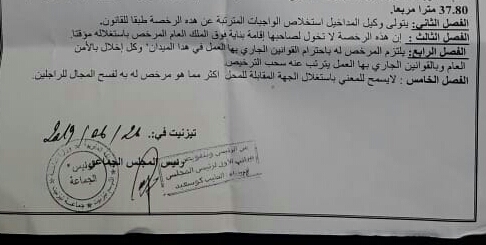 37.80 مترا مربعا.
الفصل الثاني: يتولى وكيل المداخيل استخلاص الواجبات المترتبة عن هده الرخصة طبقا للقانون.
الفصل الثالث : إن هده الرخصة لا تخول لصاحبها إقامة بناية فوق الملك العام المرخص باستغلاله مؤقتا.
الفصل الرابع : يلتزم المرخص له باحترام القوانين الجاري بها العمل في هدا الميدان' وكل إخلال بالأمن
العام وبالقوانين الجاري بها العمل يترتب عنه سحب الترخيص
الفصل الخامس : لايسمح للمعني باستغلال الجهة المقابلة للمحل اكثر مما هو مرخص له به لفسح المجال للراجلين.
تيزنيت في: 2019/06/26
رئيس المجلس الجماعي
عن الرئيس وبتفويض
النائب الأول لرئيس المجلس
الرئيس
الجماعة